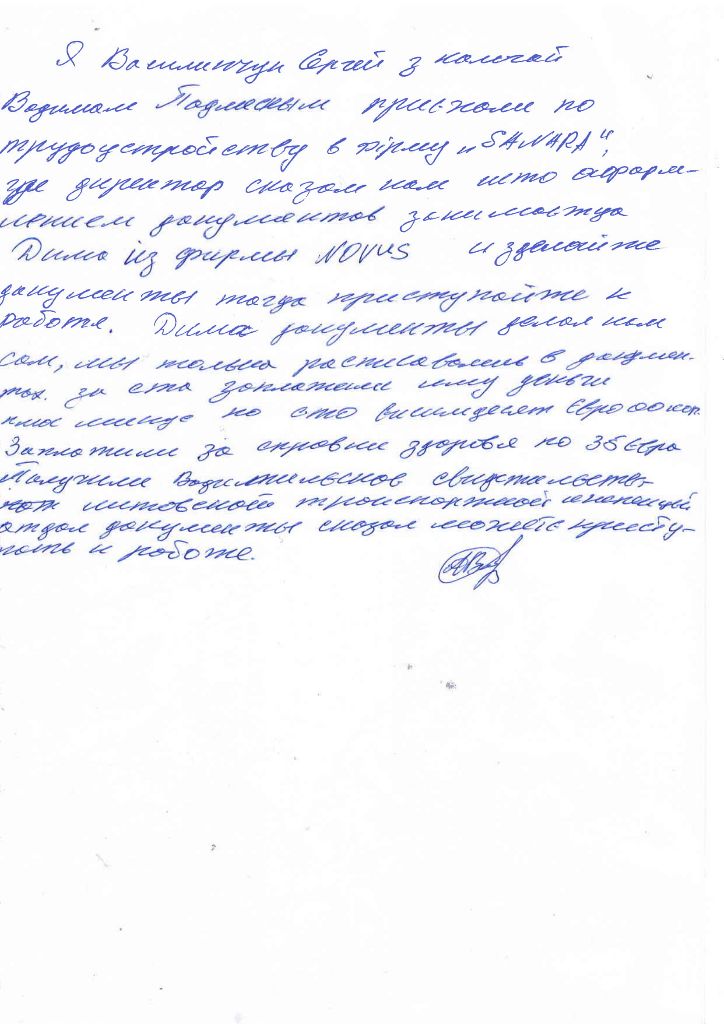 Я Василинчук Сергей з колегой
Водимом Подлесным приєхоли по
трудоустройству в фірму „SANARA",
где директор сказал нам што оформ-
лением документов занимоэтца
Дима из фирмы NOVUS и зделайте
документы тогда приступойте к
роботе. Дима документы делал нам
сам, мы только росписовались в докумен-
тах. за ето заплатили ему деньги
по сто висимдесят Євро
Заплатили за справки здоровя по 35 Євро
Получили Водительсков свидетельств-
литовской транспортной инспекций
отдал документы сказал можете присту-
пать к роботе.